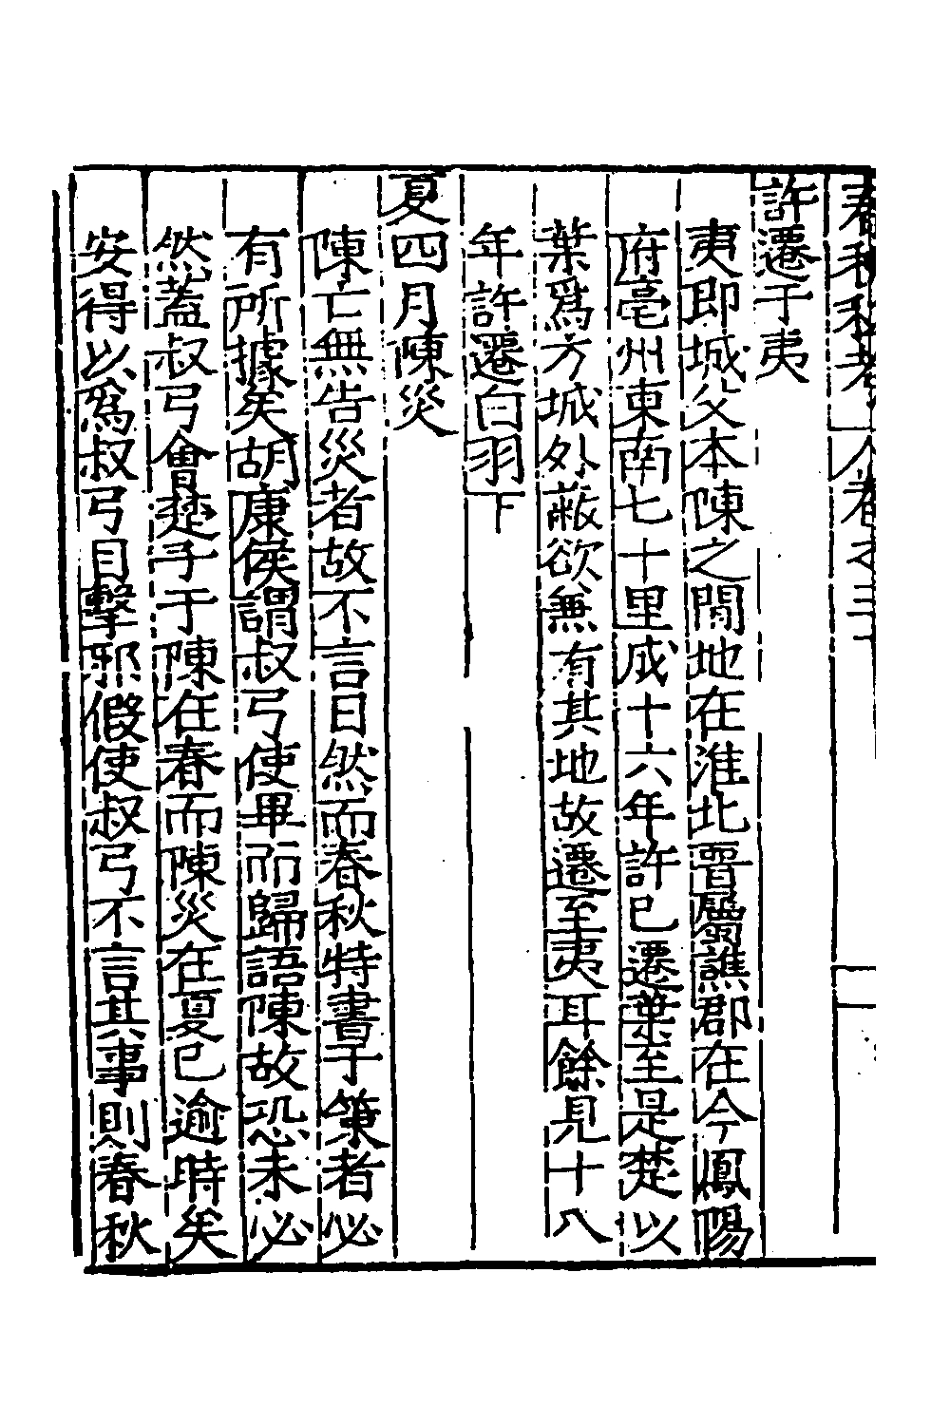 許遷于夷
夷即城父本陳之閒地在淮北晉屬譙郡在今鳳陽
府亳州東南七十里成十六年許已遷葉至是楚以
葉爲方城外蔽欲無有其地故遷至夷耳餘見十八
年許遷白羽下
夏四月陳災
陳亡無告災者故不言日然而春秋特書于策者必
有所據矣胡康侯謂叔弓使畢而歸語陳故恐未必
然蓋叔弓會楚子于陳在春而陳災在夏已逾時矣
安得以爲叔弓目擊邪假使叔弓不言其事則春秋